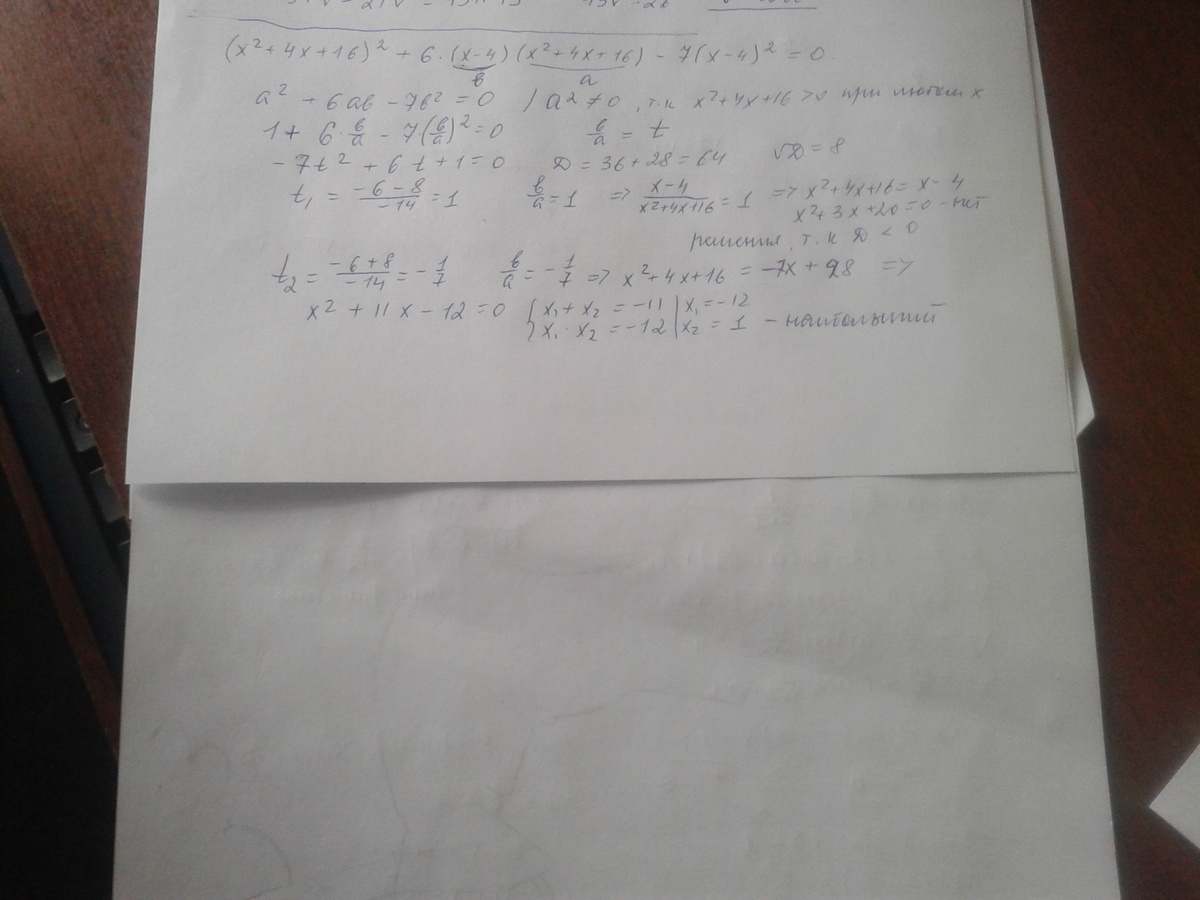 (x²+4x+16)² + 6·(x-4)(x²+4x+16) - 7(x-4)² = 0.
в а
a² + 6ав - 7в² = 0 / a² ≠ 0, т.к x²+4x+16 >0 при любых x
1 + 6·в/а - 7(в/а)² = 0 в/а = t
-7t² + 6t + 1 = 0 D = 36+28 = 64 √D = 8
t₁ = (-6-8)/(-14) = 1 в/а = 1 => (x-4)/(x²+4x+16) = 1 => x²+4x+16 = x-4
x²+3x+20=0 - нет
решения, т.к D < 0
t₂ = (-6+8)/(-14) = -1/7 в/а = -1/7 => x²+4x+16 = -7x+28 =>
x² + 11x - 12 = 0 { x₁+x₂ = -11 | x₁ = -12
x₁·x₂ = -12 | x₂ = 1 - наибольший